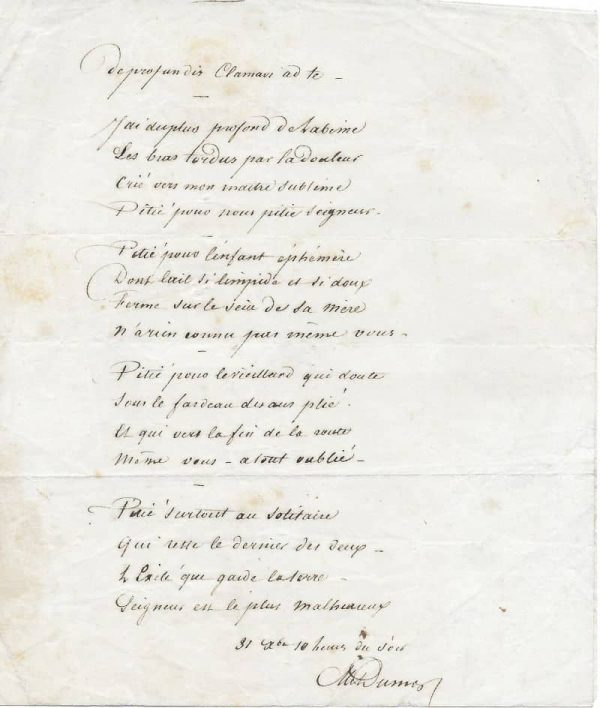 De profundis Clamavi ad te –
J'ai du plus profond de l'abime
Les bras tordus par la douleur
Crié vers mon maitre sublime
Pitié pour nous pitié Seigneur –
Pitié pour l'enfant éphémère
Dont l'œil si limpide et si doux
Fermé sur le sein de sa mère
N'a rien connu pas même vous –
Pitié pour le vieillard qui doute
Sous le fardeau des ans plié.
Et qui vers la fin de la route
Même vous – a tout oublié –
Pitié surtout au solitaire
Qui reste le dernier des deux –
L'Exilé que garde la terre –
Seigneur est le plus malheureux
31 Xbre 10 heures du soir
Alex Dumas